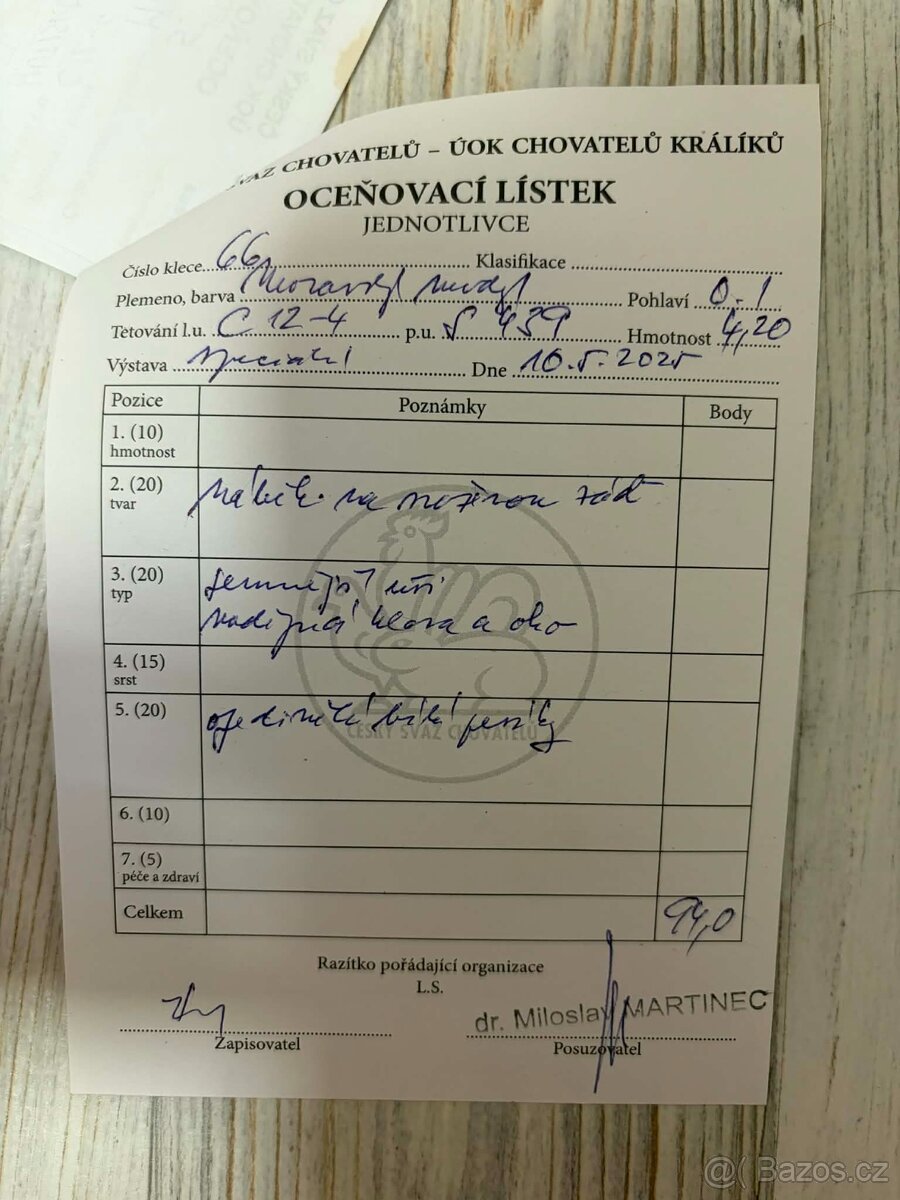 SVAZ CHOVATELŮ – ÚOK CHOVATELŮ KRÁLÍKŮ
OCEŇOVACÍ LÍSTEK
JEDNOTLIVCE
Číslo klece 66 Klasifikace
Plemeno, barva Moravský modrý Pohlaví 0.1
Tetování l.u. C 12-4 p.u. S 439 Hmotnost 4,20
Výstava speciální Dne 10.5.2025
Pozice Poznámky Body
1. (10)
hmotnost
2. (20) náběh na sraženou záď
tvar
3. (20) jemnější uši
typ výdejná hlava a oko
4. (15)
srst
5. (20) ojedinělé bílé pesíky
ČESKÝ SVAZ CHOVATELŮ
6. (10)
7. (5)
péče a zdraví
Celkem 94,0
Razítko pořádající organizace
L.S.
dr. Miloslav MARTINEC
Zapisovatel Posuzovatel
@( Bazos.cz